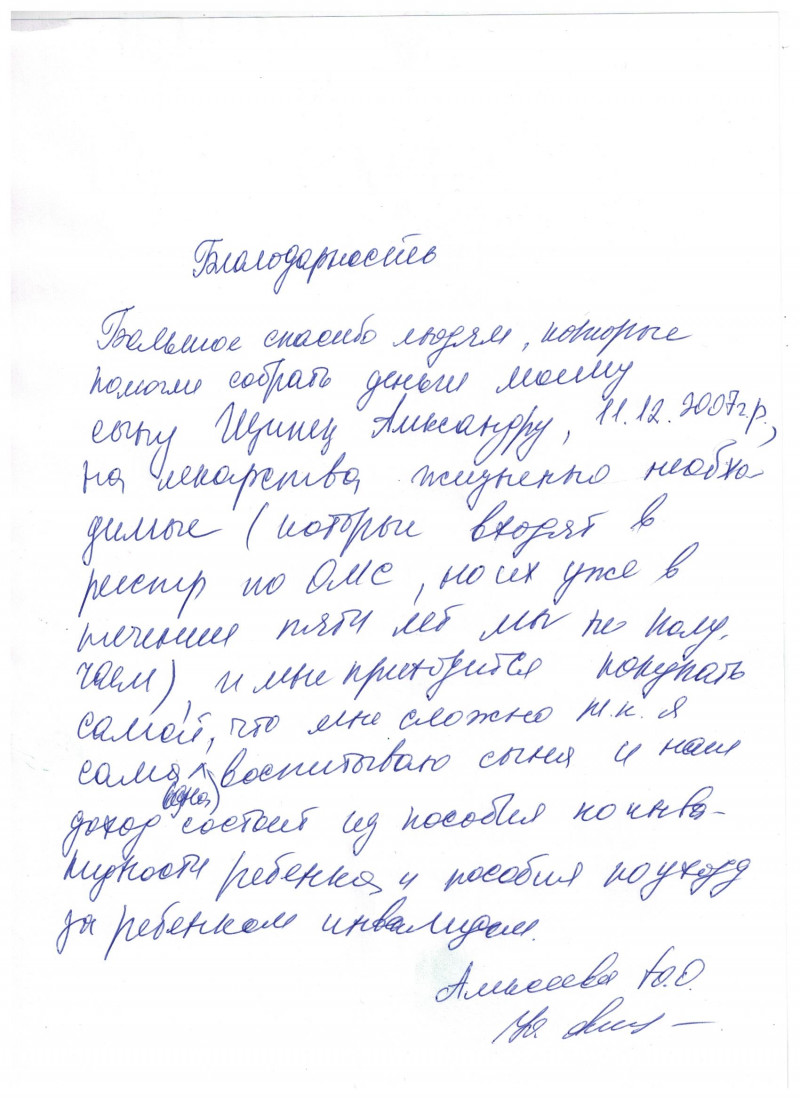 Благодарность
Большое спасибо людям, которые
помогли собрать деньги моему
сыну Щипец Александру, 11.12.2007г.р.,
на лекарства жизненно необхо-
димые (которые входят в
реестр по ОМС, но их уже в
течении пяти лет мы не полу-
чаем), и мне приходится покупать
самой, что мне сложно т.к. я
сама (одна) воспитываю сына и наш
доход состоит из пособия по инва-
лидности ребенка и пособия по уходу
за ребенком инвалидом.
Алексеева Ю.О.